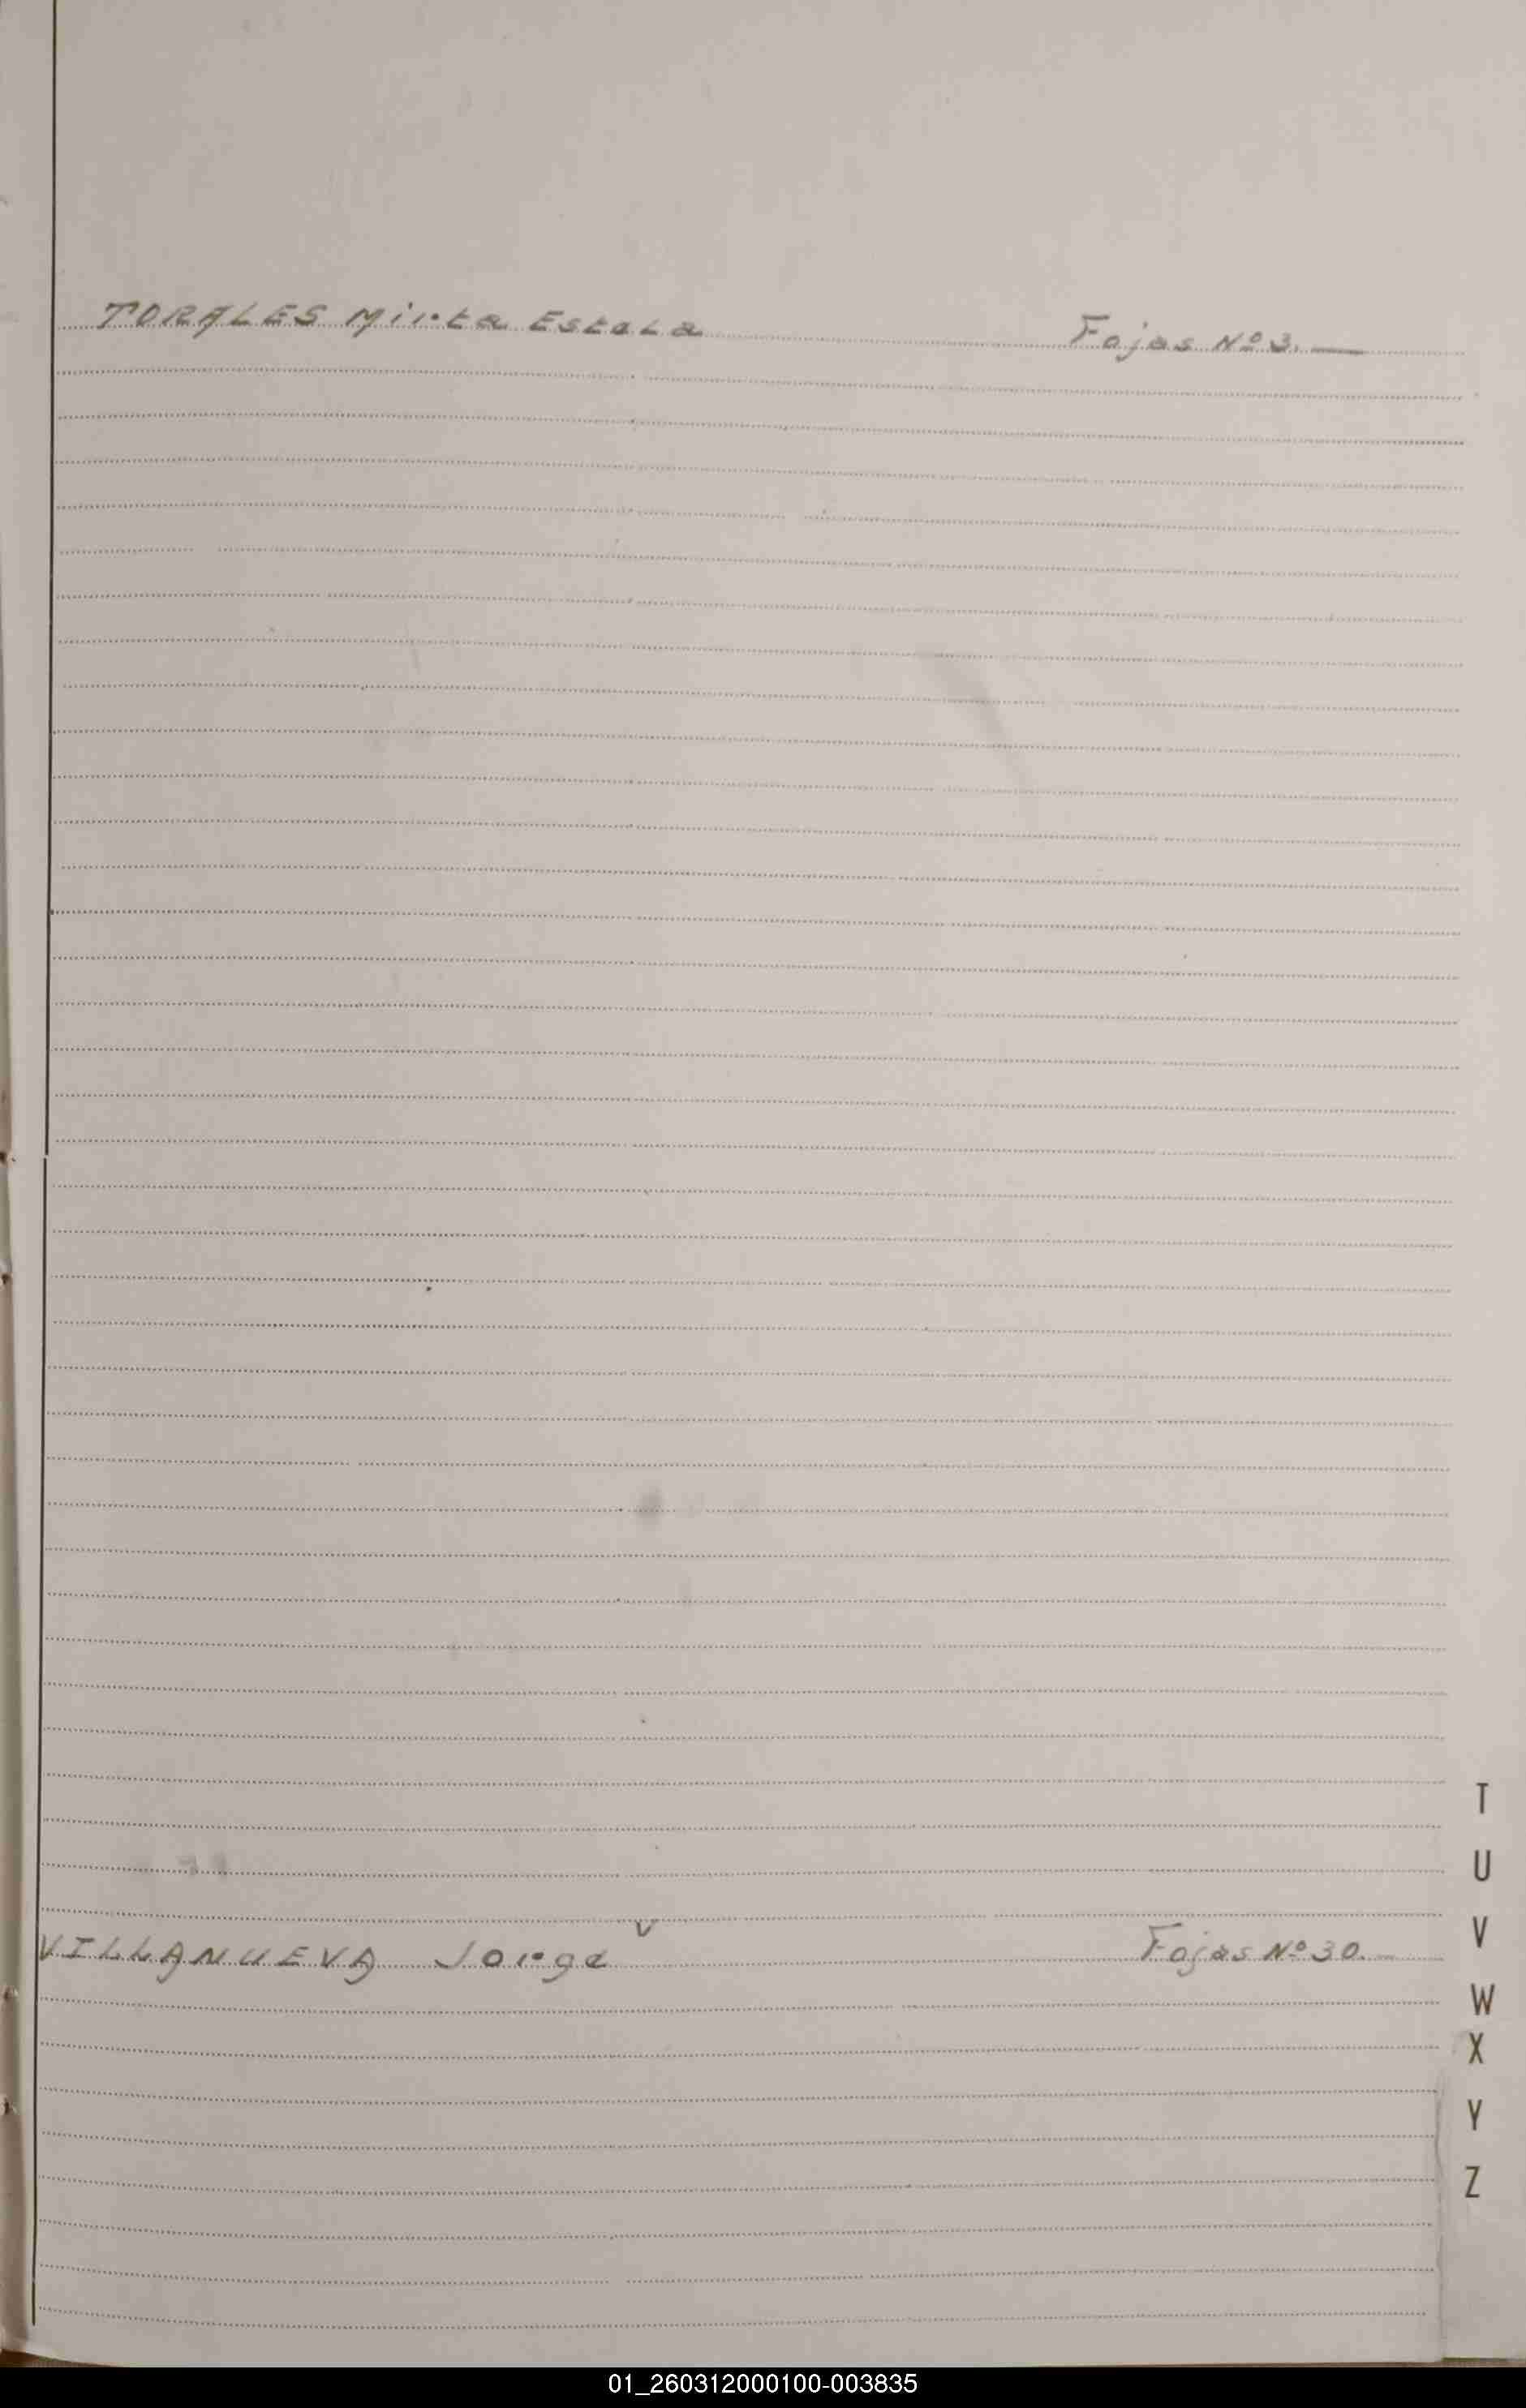 TORALES Mirta Estela Fojas Nº 3. —
T
U
V
V
VILLANUEVA Jorge Fojas Nº 30. —
W
X
Y
Z
01_260312000100-003835